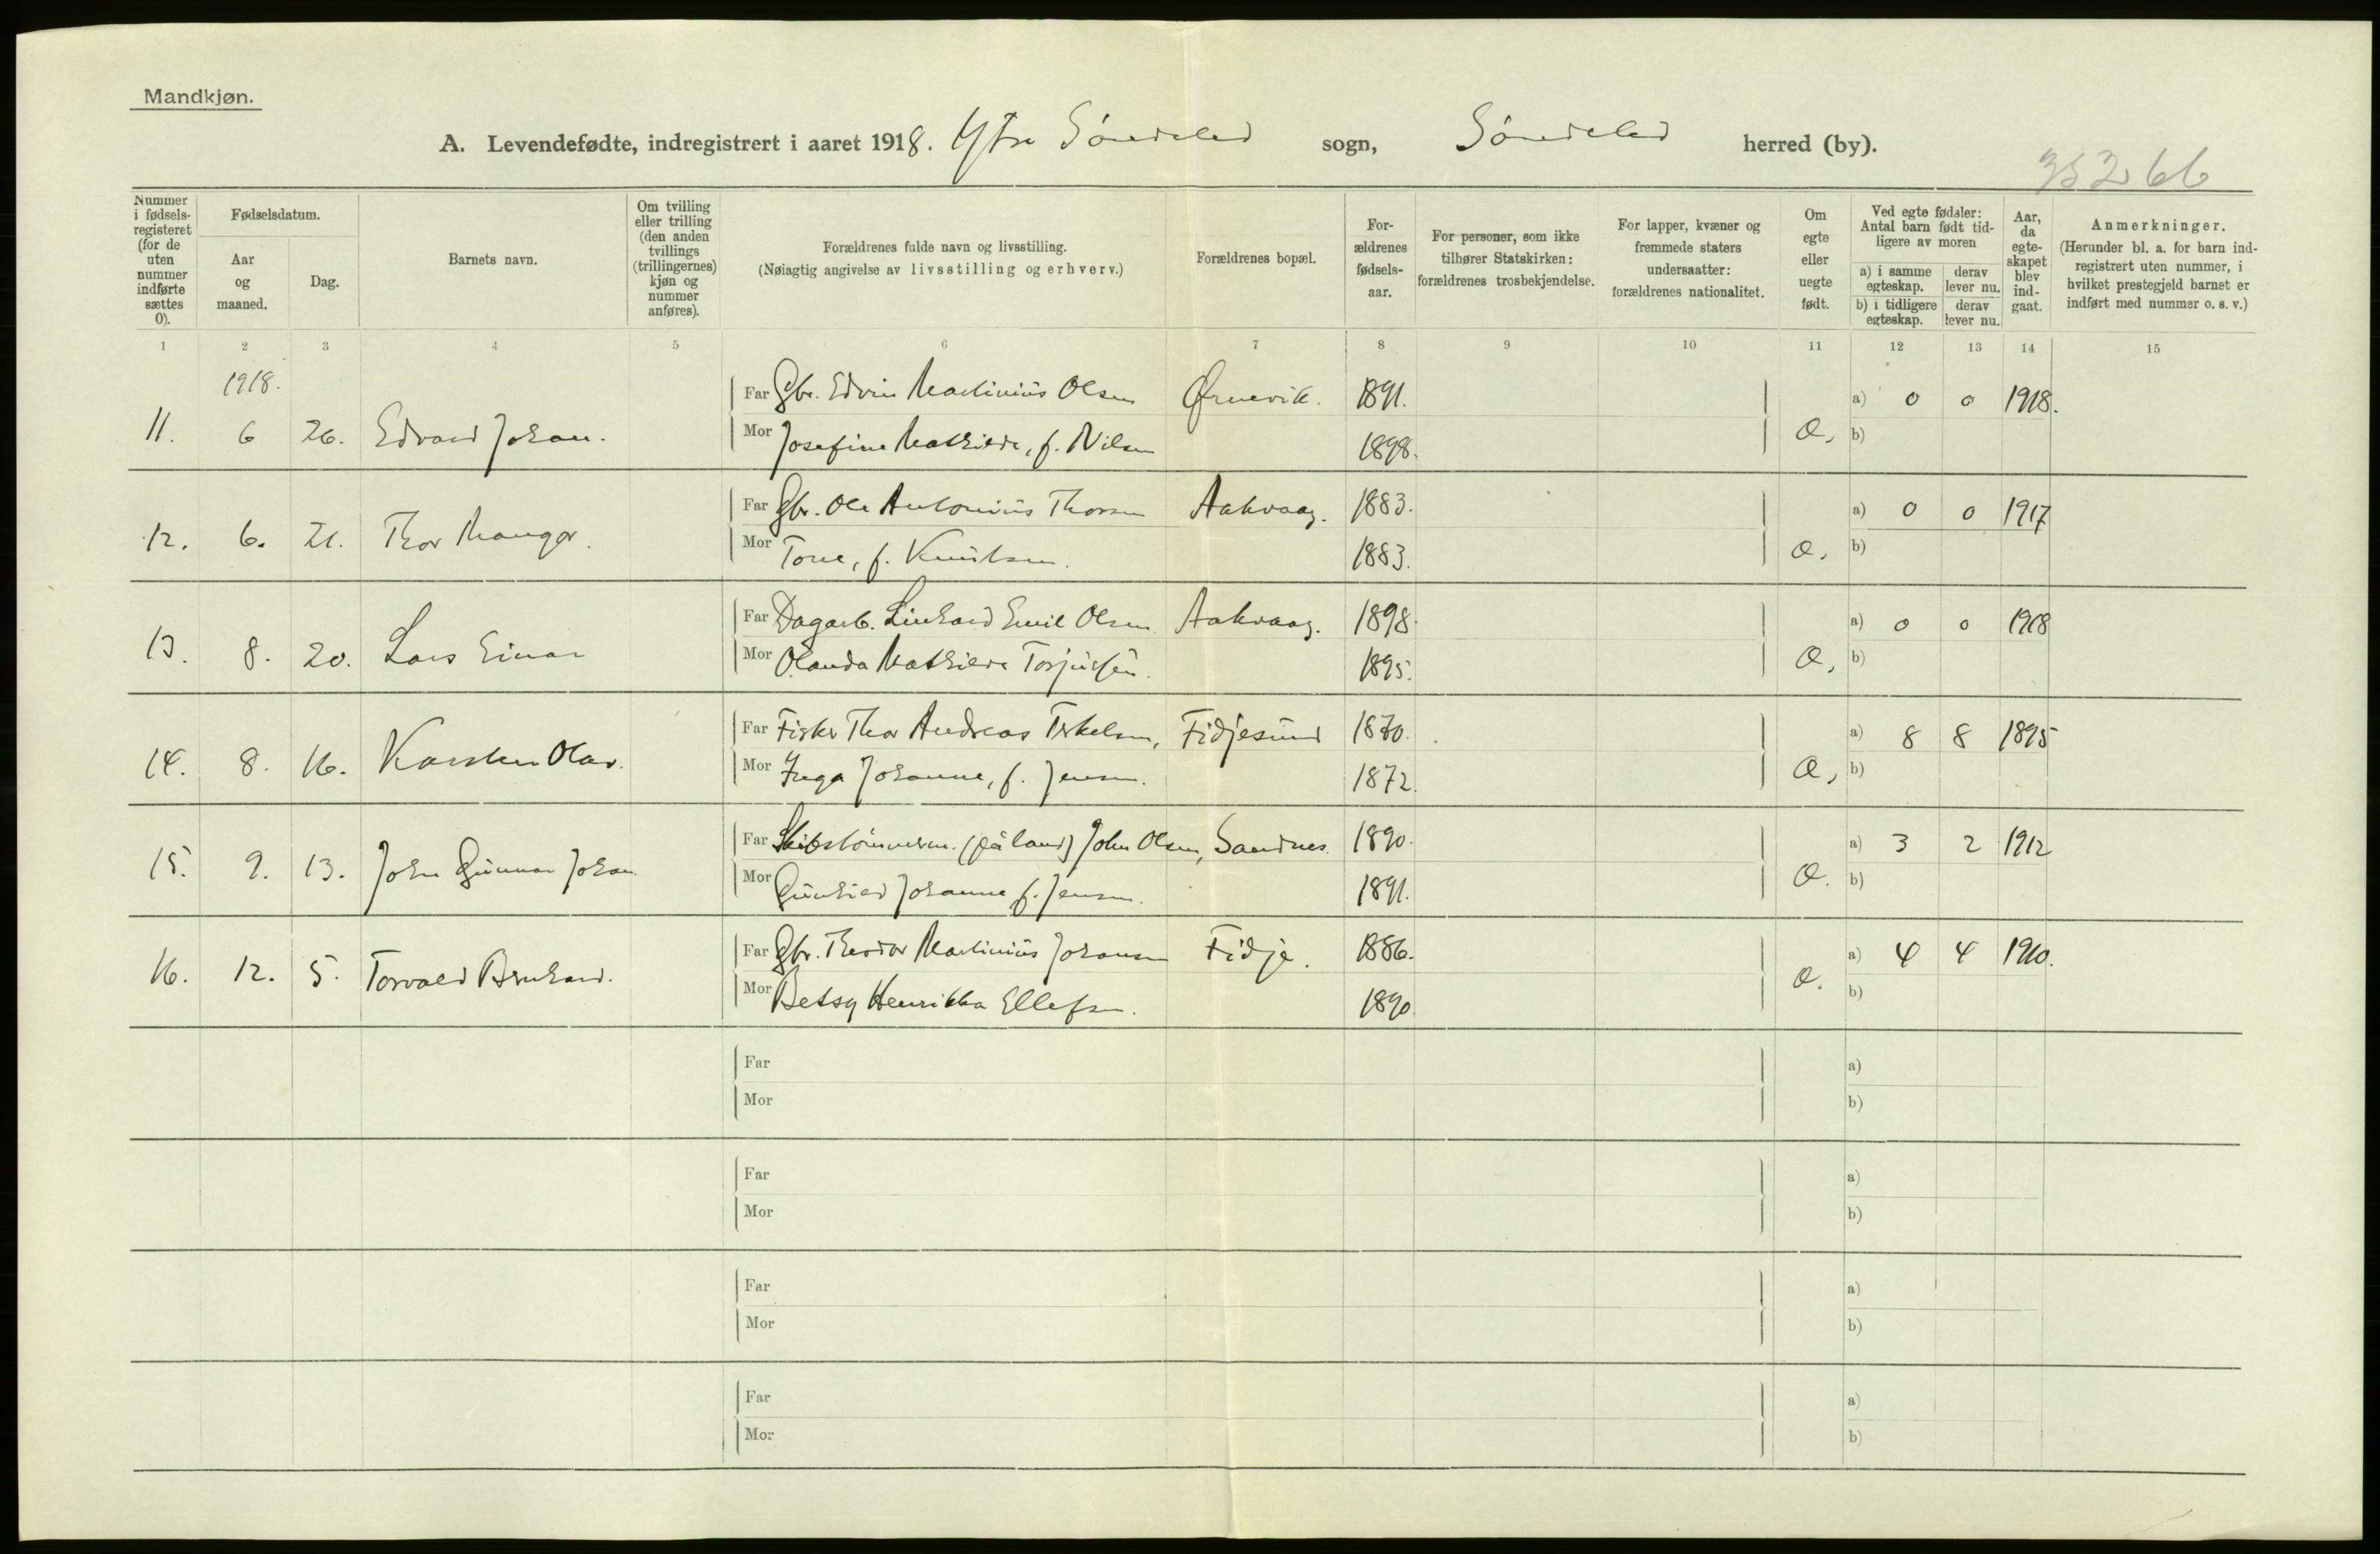 Mandkjøn.
A. Levendefødte, indregistrert i aaret 1918. Ytre Söndeled sogn, Söndeled herred (by).
35266
Nummer i fødsels-registeret (for de uten nummer indførte sættes 0).
Fødselsdatum.
Aar og maaned.
Dag.
Barnets navn.
Om tvilling eller trilling (den anden tvillings (trillingernes) kjøn og nummer anføres).
Forældrenes fulde navn og livsstilling.
(Nøiagtig angivelse av livsstilling og erhverv.)
Forældrenes bopæl.
For-ældrenes fødsels-aar.
For personer, som ikke tilhører Statskirken: forældrenes trosbekjendelse.
For lapper, kvæner og fremmede staters undersaatter: forældrenes nationalitet.
Om egte eller uegte født.
Ved egte fødsler: Antal barn født tid-ligere av moren
a) i samme egteskap. derav lever nu.
b) i tidligere egteskap. derav lever nu.
Aar, da egte-skapet blev ind-gaat.
Anmerkninger.
(Herunder bl. a. for barn ind-registrert uten nummer, i hvilket prestegjeld barnet er indført med nummer o. s. v.)
1 2 3 4 5 6 7 8 9 10 11 12 13 14 15
1918.
Far Gbr. Edvin Martinius Olsen Ørnevik. 1891. a) 0 0 1918.
11. 6 26. Edvard Johan. Mor Josefine Mathilde, f. Nilsen 1898. b)
Far Gbr. Ole Antonius Thorsen Aakvaag. 1883. a) 0 0 1917
12. 6. 21. Thor Mangor. Mor Tone, f. Knutsen. 1883. b)
Far Dagarb. Linhard Emil Olsen Aakvaag. 1898. a) 0 0 1918
13. 8. 20. Lars Einar Mor Olanda Mathilde Torjusen. 1895. b)
Far Fisker Thor Andreas Terkelsen, Fidjesund 1870. a) 8 8 1895
14. 8. 16. Karsten Olav. Mor Inga Johanne, f. Jensen. 1872. b)
Far Skibstömmerm. (på land) John Olsen, Sandnes. 1890. a) 3 2 1912
15. 9. 13. John Gunnar Johan. Mor Gunhild Johanne f. Jensen. 1891. b)
Far Gbr. Theodor Martinius Johansen Fidje. 1886. a) 4 4 1910.
16. 12. 5. Torvald Bernhard. Mor Betsy Henrikka Ellefsen. 1890 b)
Far a)
Mor b)
Far a)
Mor b)
Far a)
Mor b)
Far a)
Mor b)